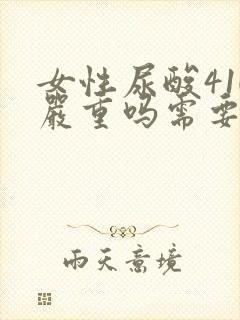 女性尿酸41
严重吗需要
雨天意境